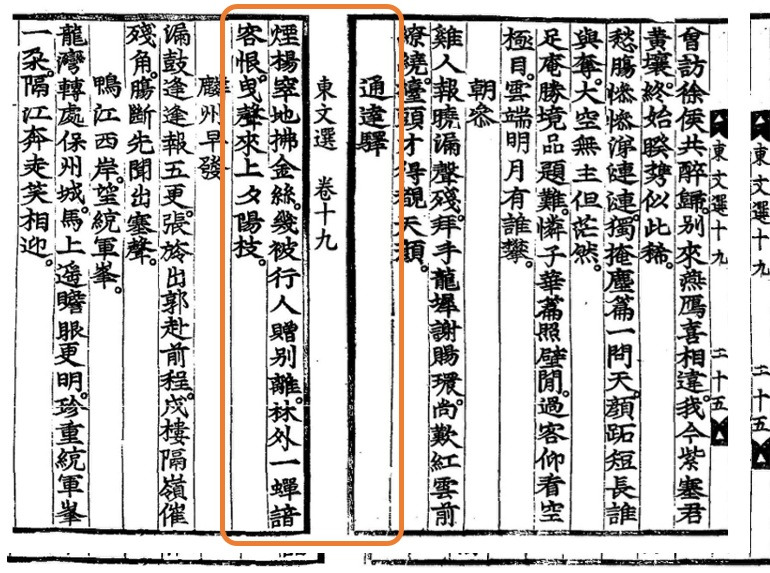 東文選十九 二十五
東文選十九 二十五
會訪徐侯共醉歸。別來燕鴈喜相違。我今紫塞君
黃壤。終始暌携似此稀。
愁腸慘慘淚漣漣。獨掩塵篇一問天。顔跖短長誰
與奪。大空無主但茫然。
足庵勝境品題難。憐子華篇照壁間。過客仰看空
極目。雲端明月有誰攀。
朝參
雞人報曉漏聲殘。拜手龍墀謝賜環。尚歎紅雲前
繚繞。螭頭才得覩天顔。
通達驛
東文選 卷十九
煙楊窣地拂金絲。幾被行人贈別離。林外一蟬諳
客恨。曳聲來上夕陽枝。
麟州早發
漏鼓逢逢報五更。張旂出郭赴前程。戍樓隔嶺催
殘角。腸斷先聞出塞聲。
鴨江西岸。望統軍峯。
龍灣轉處保州城。馬上遙瞻眼更明。珍重統軍峯
一朶。隔江奔走笑相迎。